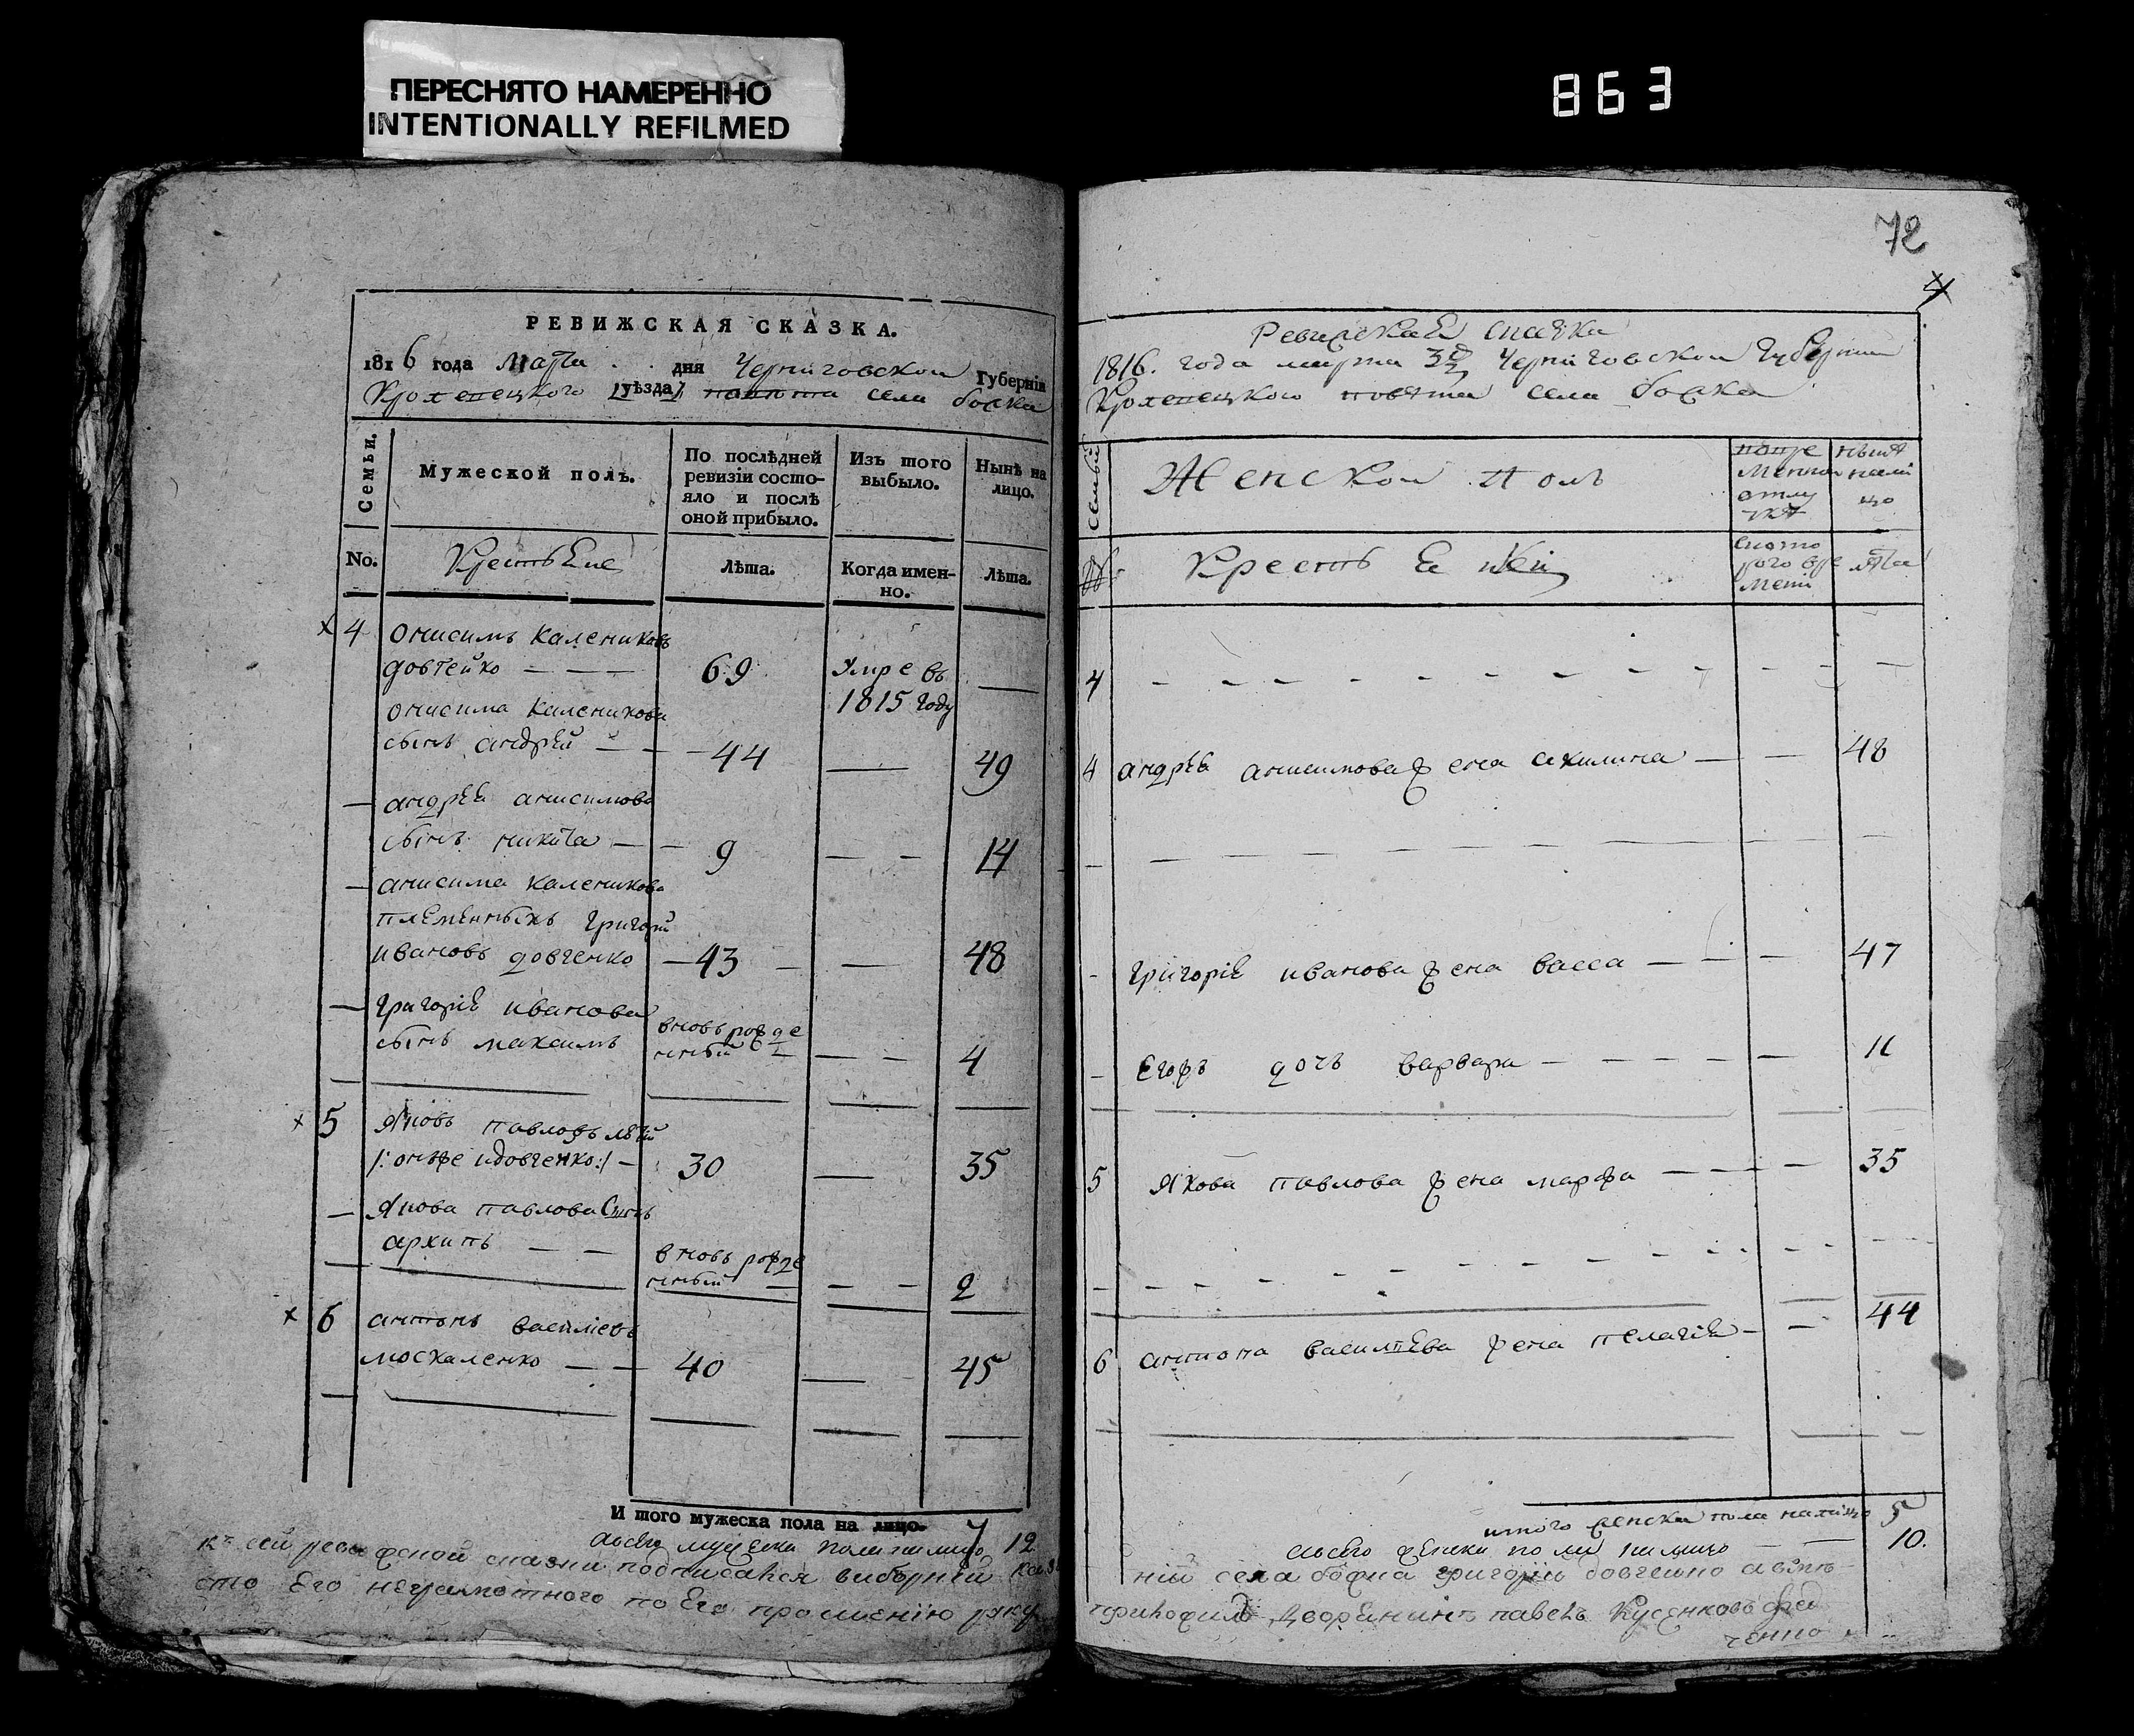 ПЕРЕСНЯТО НАМЕРЕННО
INTENTIONALLY REFILMED
863
РЕВИЖСКАЯ СКАЗКА.
1816 года марта дня Черниговской Губерніи
Кролевецкого уѣзда повѣта села
Семьи.
Мужеской полъ.
По послѣдней
ревизіи состо-
яло и послѣ
оной прибыло.
Изъ того
выбыло.
Нынѣ на
лицо.
No.
Крестьяне
Лѣта.
Когда имен-
но.
Лѣта.
х 4 онисимъ калениковъ
довгенко — — 69 Умре въ —
1815 году
онисима каленикова
сынъ андрѣй — — 44 — 49
— андрѣя анисимова
сынъ никита — — 9 — — 14
— анисима каленикова
племѣнныкъ григорій
ивановъ довгенко — 43 — — 48
— григоріѣ иванова
сынъ максимъ
вновь рожде
нный — — 4
х 5 Яковъ павловъ
онже идовгенко — 30 — 35
— Якова павлова сынъ
архипъ — —
вновь рожде
нный — — 2
х 6 антонъ василіевъ
москаленко — — 40 — 45
И того мужеска пола на лицо. 7
12
къ сей ревижской сказки подписался виборній
его неграмотного по его прошенію руку
72
4
Ревижская сказка
1816. года марта Черниговской Губерніи
Кролевецкого повѣта села
Семьи
Женской полъ
Крестьянки
лѣта
4 — — — — — — — — — —
4 андрѣя анисимова жена акилина — — 48
— — — — — — —
- григоріѣ иванова жена васса — — — 47
- Егожъ дочъ варвара — — — — — 11
5 Якова павлова жена марфа — — — — 35
- — — — — — — — —
6 антона василѣва жена пелагіѣ — — 44
итого женска пола налицо 5
10.
села григорій довгенко
дворѣнинъ павелъ